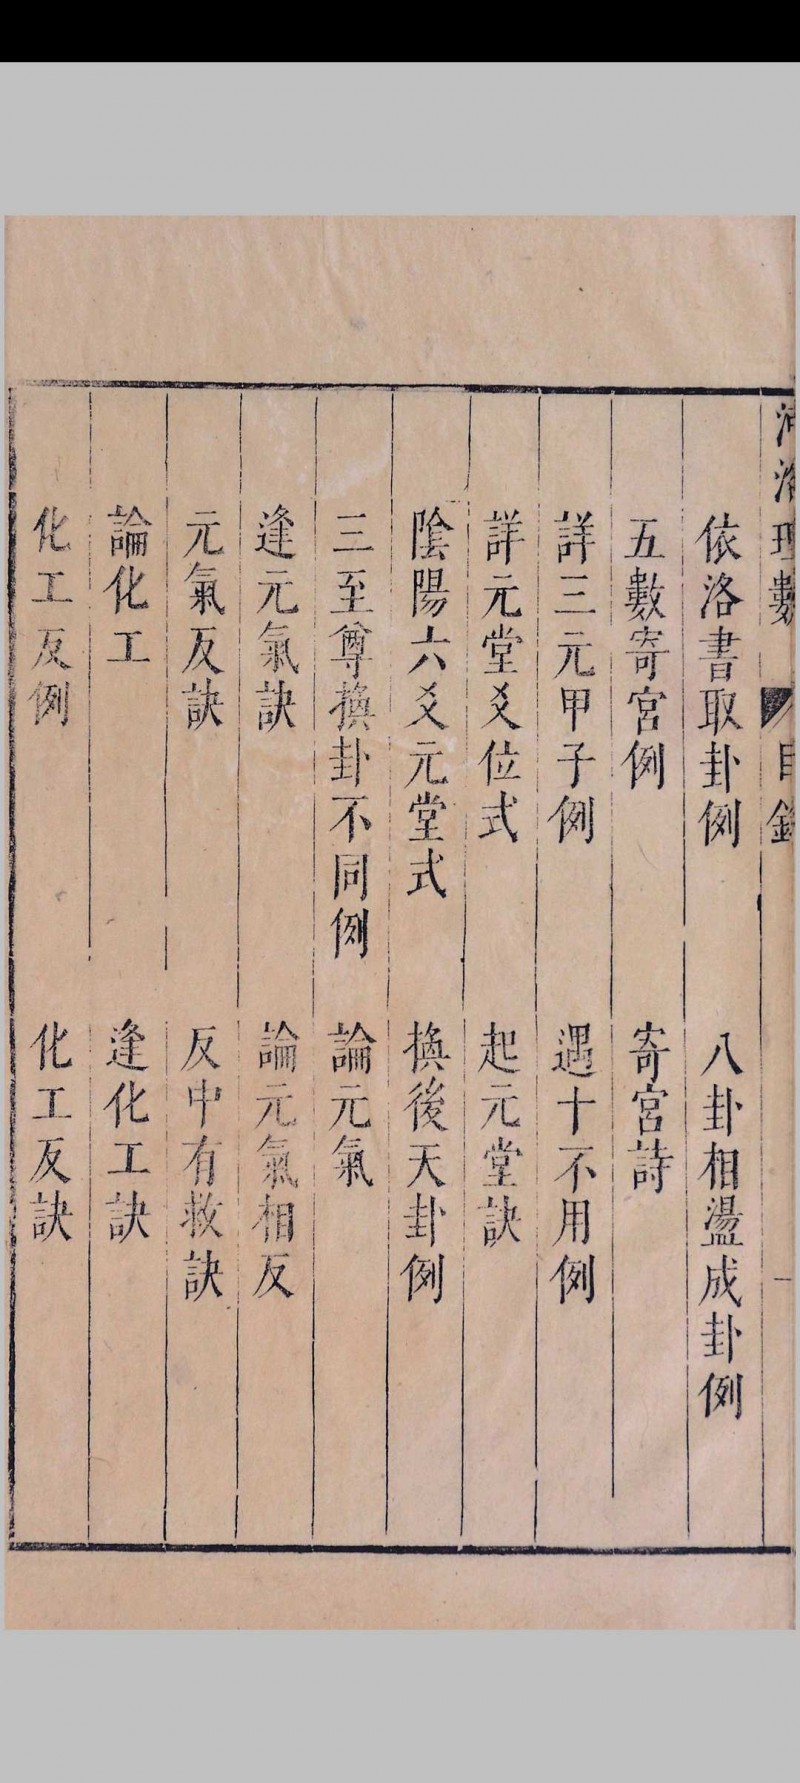 河洛理數 目錄 一
依洛書取卦例 八卦相盪成卦例
五數寄宮例 寄宮詩
詳三元甲子例 遇十不用例
詳元堂爻位式 起元堂訣
陰陽六爻元堂式 換後天卦例
三至尊換卦不同例 論元氣
逢元氣訣 論元氣相反
元氣反訣 反中有救訣
論化工 逢化工訣
化工反例 化工反訣